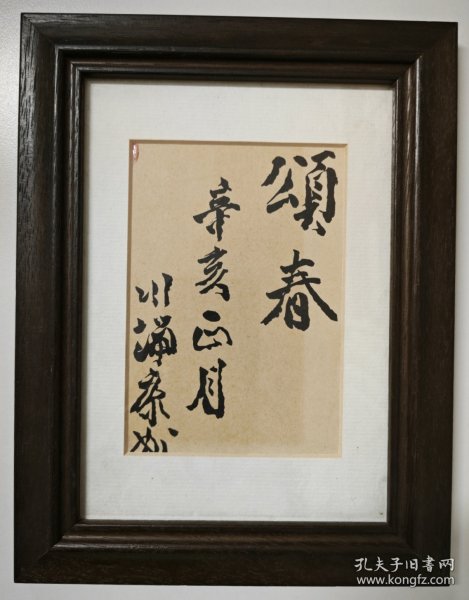 頌春
辛亥正月
川端康成
孔夫子旧书网
www.kongfz.com